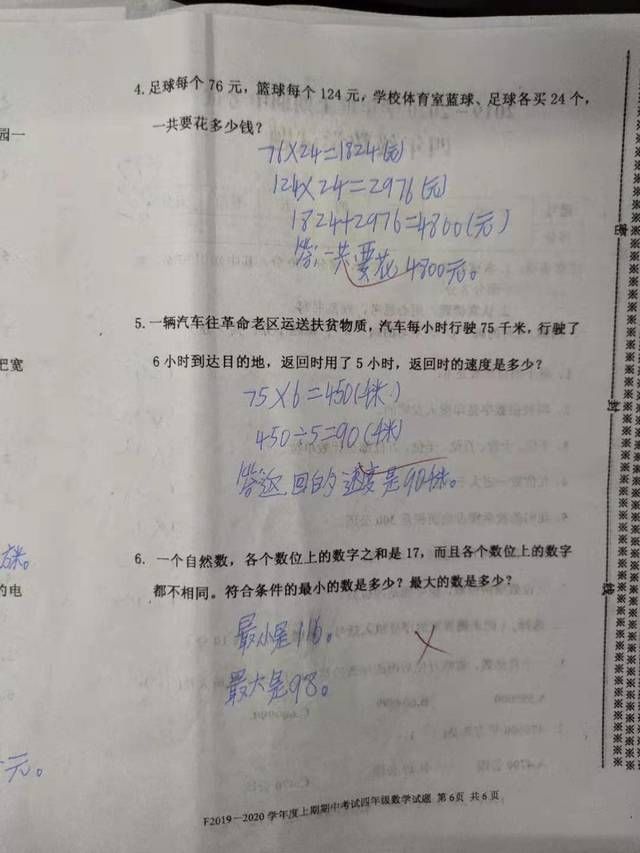 4.足球每个 76 元，篮球每个 124 元，学校体育室篮球、足球各买 24 个，
一共要花多少钱？
76×24=1824(元)
124×24=2976(元)
1824+2976=4800(元)
答:一共要花4800元。
5.一辆汽车往革命老区运送扶贫物质，汽车每小时行驶 75 千米，行驶了
6 小时到达目的地，返回时用了 5 小时，返回时的速度是多少？
75×6=450(千米)
450÷5=90(千米)
答:返回的速度是90千米。
6. 一个自然数，各个数位上的数字之和是 17，而且各个数位上的数字
都不相同。符合条件的最小的数是多少？最大的数是多少？
最小是116。
最大是98。
园一
把宽
的电
元。
密
封
线
F2019－2020 学年度上期期中考试四年级数学试题 第 6页 共 6 页